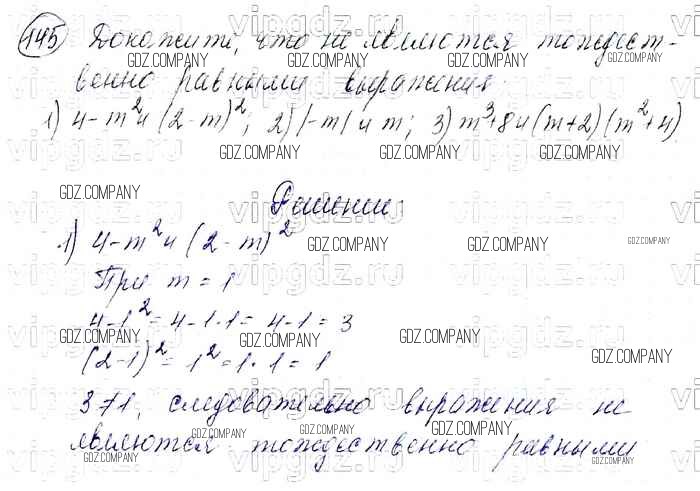 145 Докажите, что не являются тождест-
венно равными выражения:
1) 4-m² и (2-m)²; 2) |-m| и m; 3) m³+8 и (m+2)(m²+4)
Решение:
1) 4-m² и (2-m)²
При m = 1
4-1² = 4-1·1 = 4-1 = 3
(2-1)² = 1² = 1·1 = 1
3≠1, следовательно выражения не
являются тождественно равными
vipgdz.ru
GDZ.COMPANY